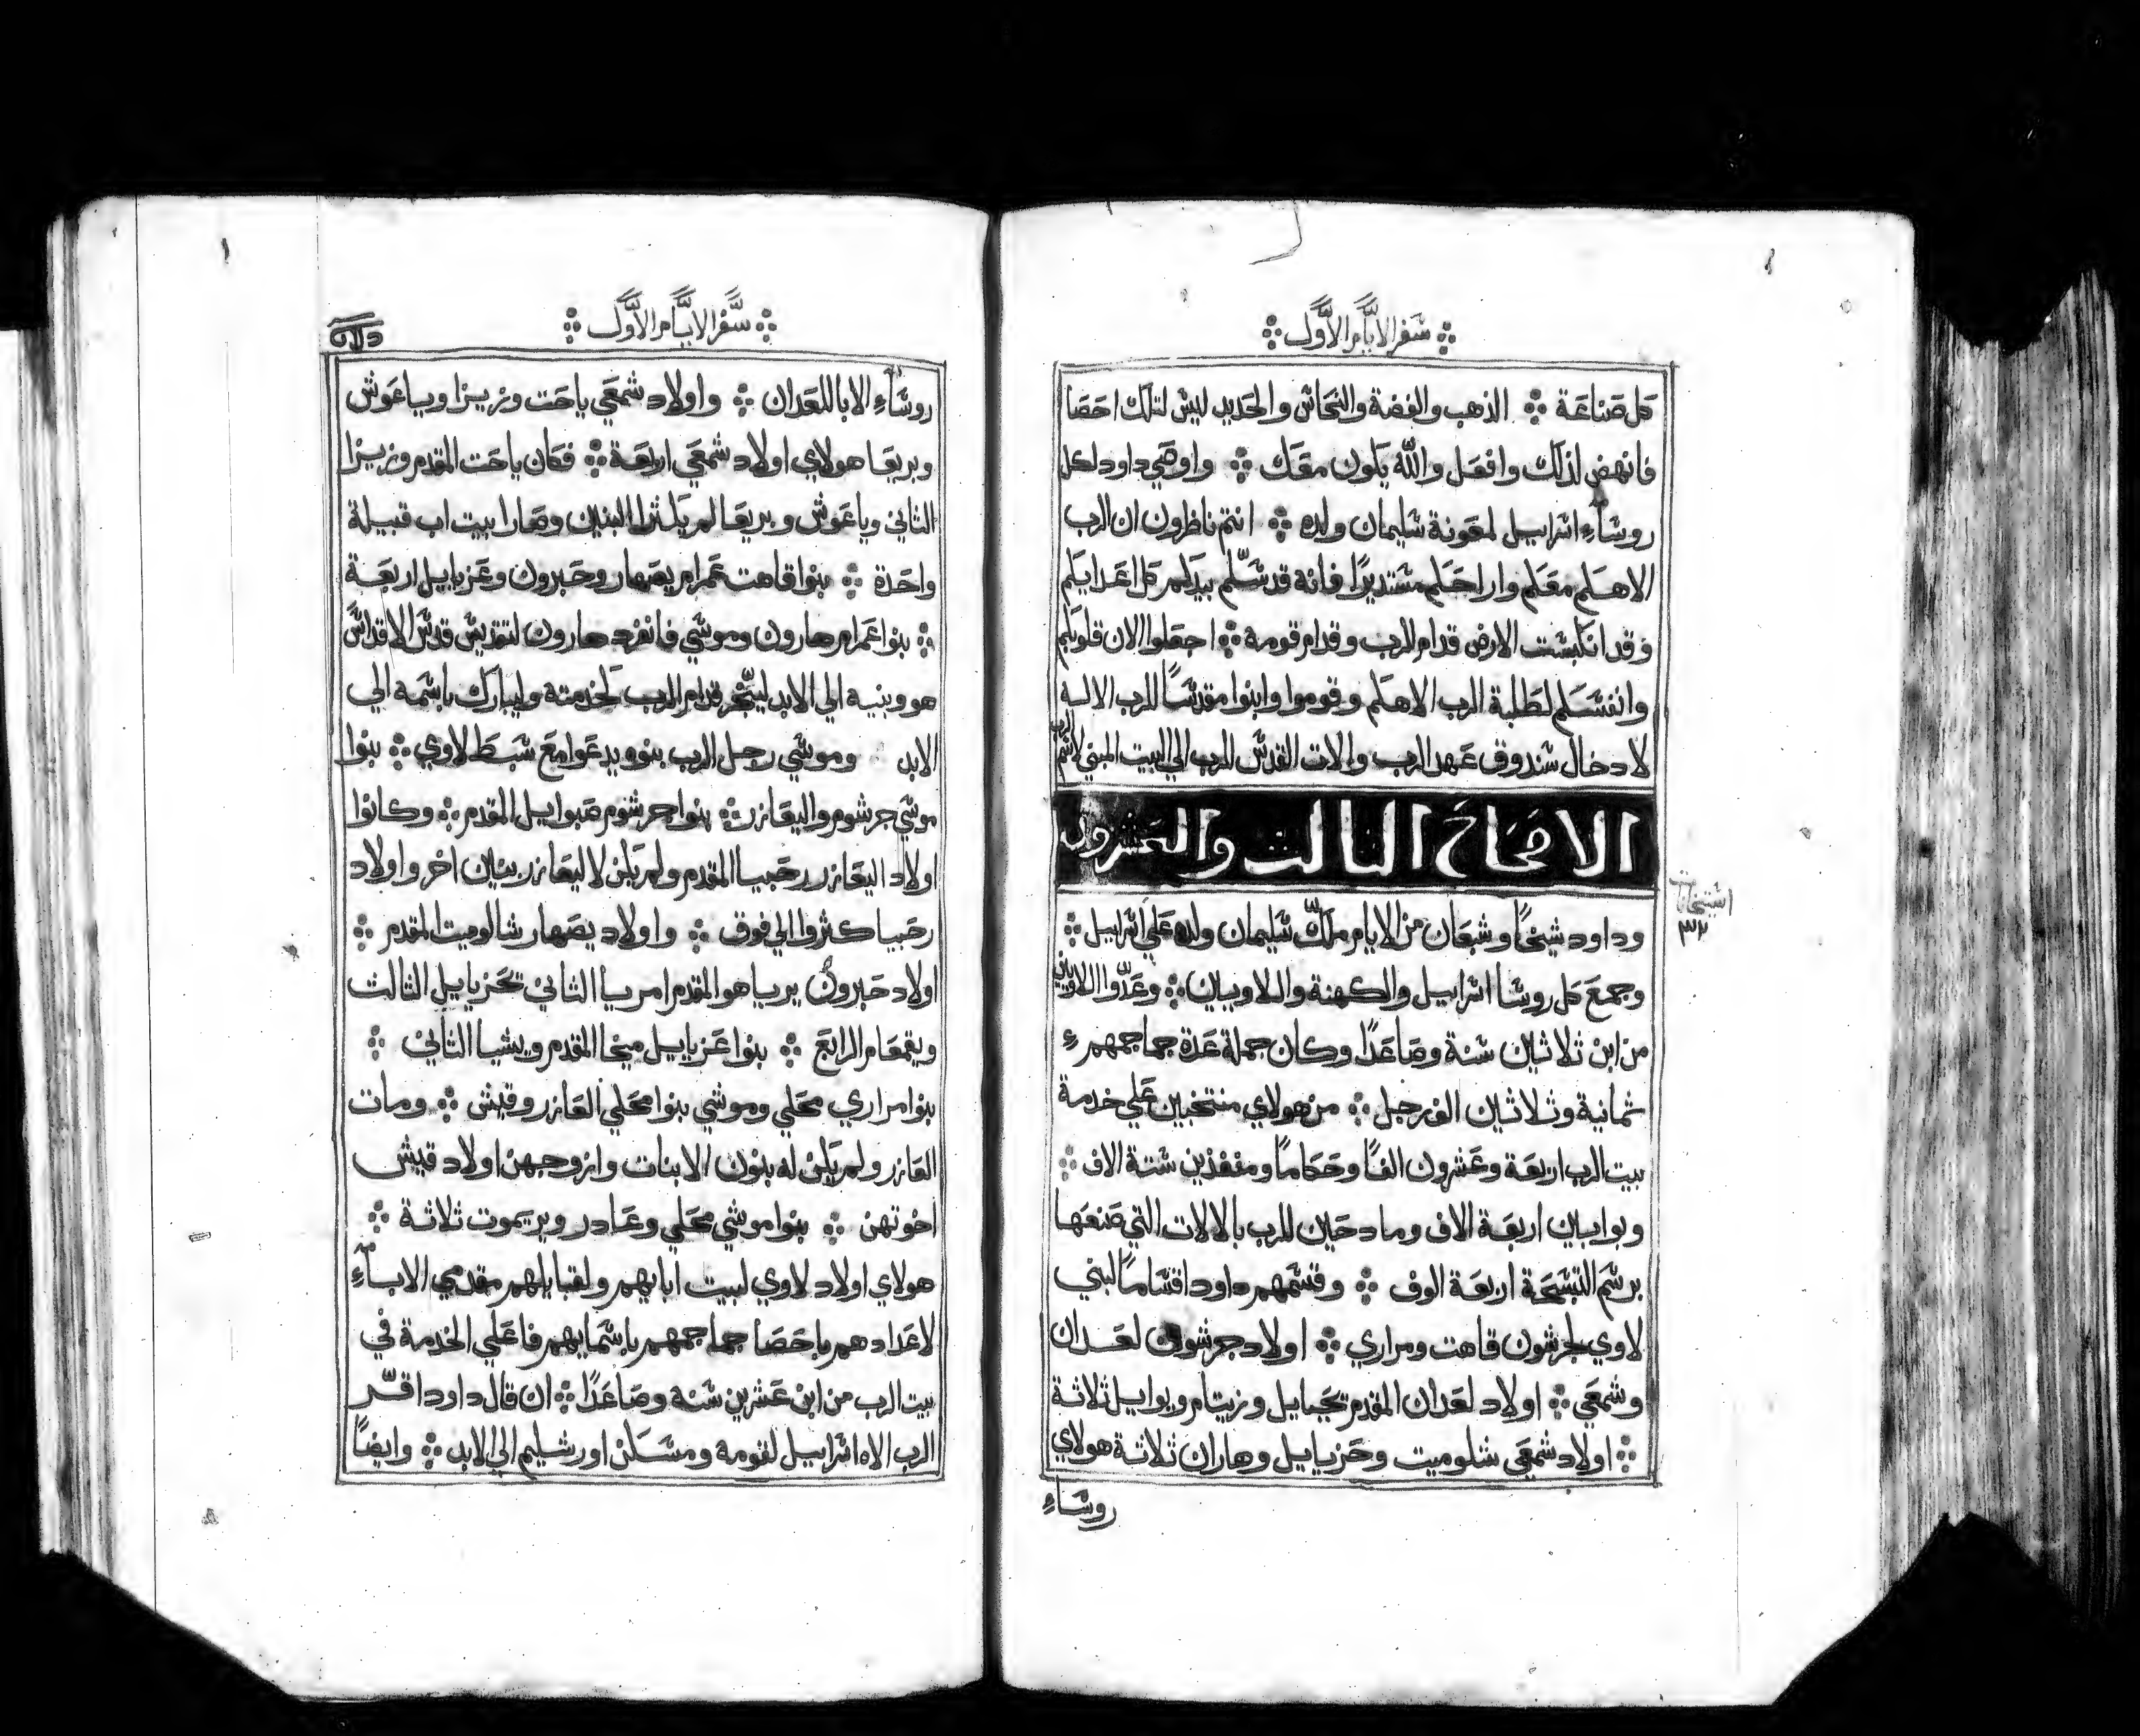 سفر الايام الاول
كل صناعة ܀ الذهب والفضة والنحاس والحديد ليس لتلك احصا
فانهض لذلك وافعل والله يكون معك ܀ واوصي داود لكل
روساء اسراييل لمعونة سليمان ولده ܀ انتم ناظرون ان الرب
الاهكم معكم واراحكم مستديرًا فانه قد سلم بيدكم كل اعدايكم
وقد انكبست الارض قدام الرب وقدام قومه ܀ اجعلوا الان قلوبكم
وانفسكم لطلبة الرب الاهكم وقوموا وابنوا مقدسًا للرب الاله
لادخال سندوق عهد الرب والات القدس للرب الي البيت المبني لاسم الرب
الاصحاح الثالث والعشرون
وداود شيخًا وشبعان من الايام ملّك سليمان ولده علي اسراييل ܀
استيخانات
٣٢
وجمع كل روسا اسراييل والكهنة واللاويين ܀ وعدّوا اللاويين
من ابن ثلاثين سنة وصاعدًا وكان جملة عدة جماجمهم
ثمانية وثلاثين الف رجل ܀ من هولاي منتخبين علي خدمة
بيت الرب اربعة وعشرون الفًا وحكامًا ومنفذين ستة الاف ܀
وبوابين اربعة الاف ومادحين للرب بالالات التي صنعها
برسم التسبحة اربعة الوف ܀ وقسمهم داود اقسامًا لبني
لاوي لجرشون قاهت ومراري ܀ اولاد جرشون لعدان
وشمعي ܀ اولاد لعدان المقدم يحيايل وزيتام ويوابيل ثلاثة
܀ اولاد شمعي شلوميت وحزيايل وهاران ثلاثة هولاي
روساء
سفر الايام الاول
روساء الابا للعدان ܀ واولاد شمعي ياحت وزيزا وياعوش
وبريعا هولاي اولاد شمعي اربعة ܀ فكان ياحت المقدم وزيزا
الثاني وياعوش وبريعا لم يكثرا البنين وصارا بيت اب قبيلة
واحدة ܀ بنوا قاهت عمرام يصهار وحبرون وعزيايل اربعة
܀ بنوا عمرام هارون وموسي فانفرد هارون لتقديس قدس الاقداس
هو وبنيه الي الابد ليبخّر قدام الرب لخدمته وليبارك باسمه الي
الابد وموسي رجل الرب بنوه يدعوا مع سبط لاوي ܀ بنوا
موسي جرشوم واليعازر ܀ بنوا جرشوم صبوايل المقدم ܀ وكانوا
اولاد اليعازر رحبيا المقدم ولم يكن لاليعازر بنين اخر واولاد
رحبيا كثروا الي فوق ܀ واولاد يصهار شالوميت المقدم ܀
اولاد حبرون يرياهو المقدم امريا الثاني يحزيايل الثالث
ويقمعام الرابع ܀ بنوا عزيايل ميخا المقدم ويشيا الثاني ܀
بنوا مراري محلي وموشي بنوا محلي العازر وقيش ܀ ومات
العازر ولم يكن له بنون الا بنات وازوجهن اولاد قيش
اخوتهن ܀ بنوا موشي محلي وعادر ويريموت ثلاثة ܀
هولاي اولاد لاوي لبيت ابايهم ولقبايلهم مقدمي الاباء
لاعدادهم باحصا جماجمهم باسمايهم فاعلي الخدمة في
بيت الرب من ابن عشرين سنة وصاعدًا ܀ ان قال داود اقرّ
الرب الاه اسراييل لقومه ومسكن اورشليم الي الابد ܀ وايضًا